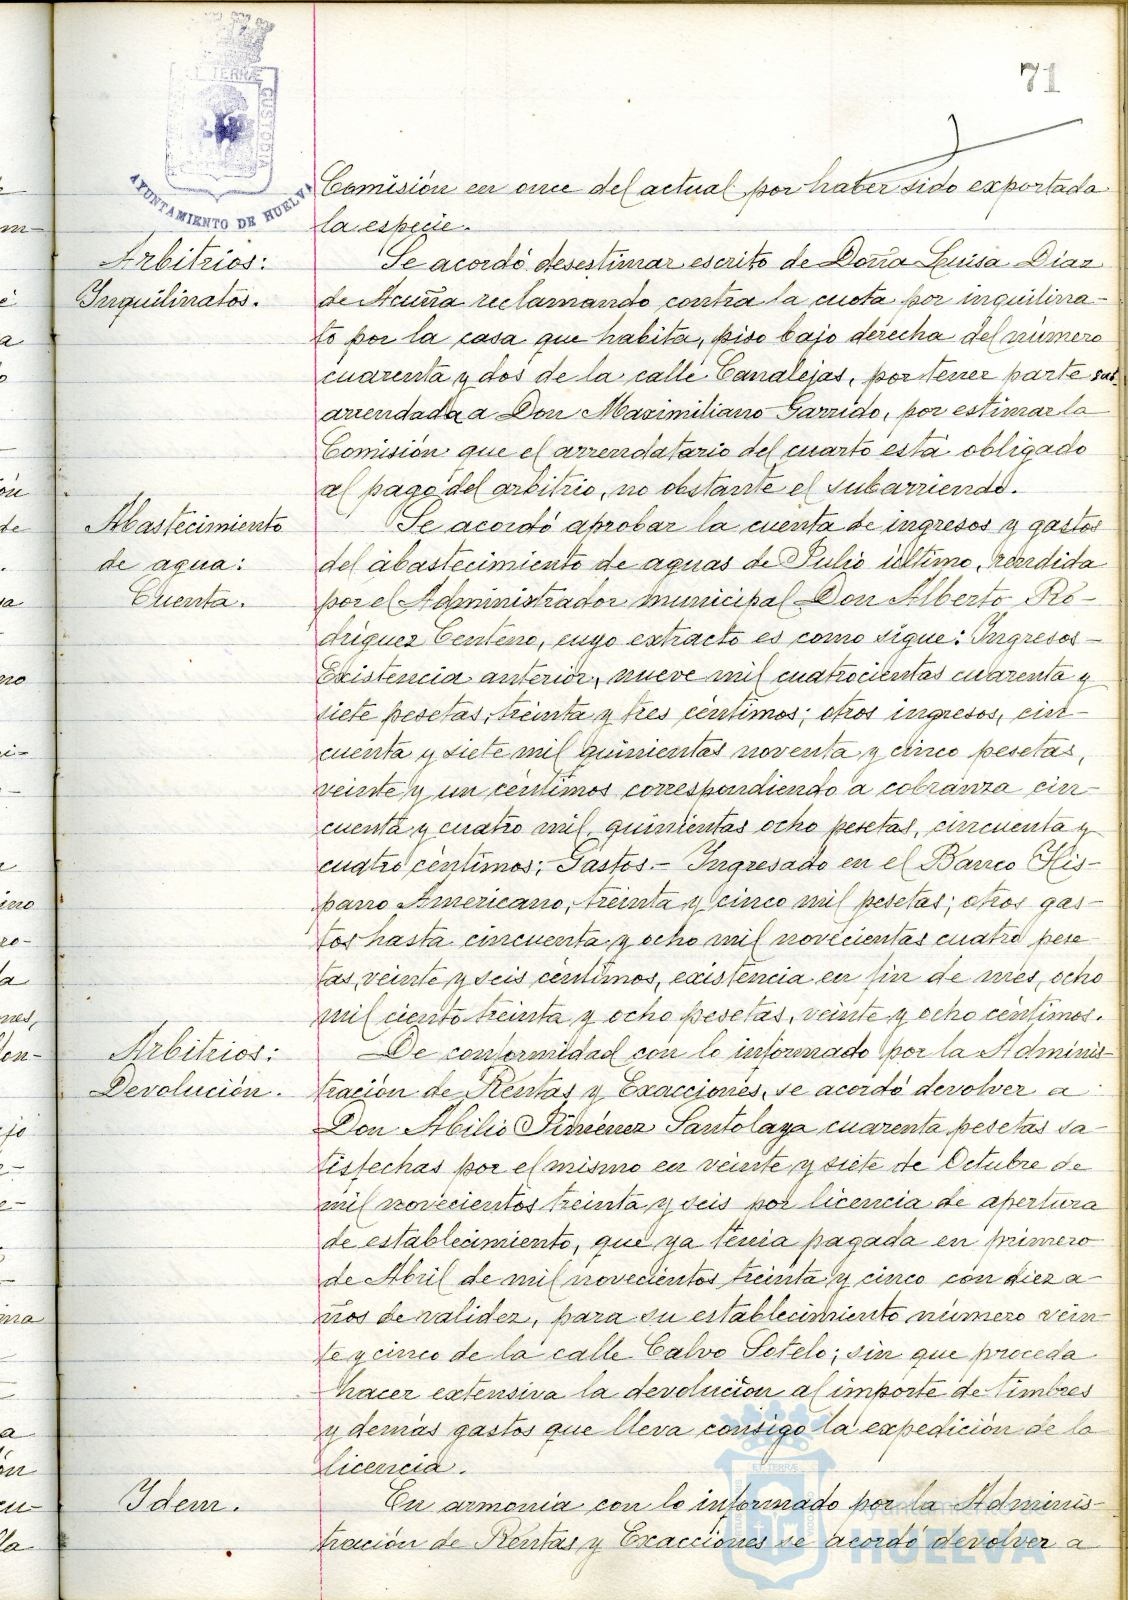 71
ET TERRÆ
CUSTODIA
AYUNTAMIENTO DE HUELVA
Comisión en once del actual por haber sido exportada
la especie.
Arbitrios:
Inquilinatos.
Se acordó desestimar escrito de Doña Luisa Díaz
de Acuña reclamando contra la cuota por inquilina-
to por la casa que habita, piso bajo derecha del número
cuarenta y dos de la calle Canalejas, por tener parte sub-
arrendada a Don Maximiliano Garrido, por estimar la
Comisión que el arrendatario del cuarto está obligado
al pago del arbitrio, no obstante el subarriendo.
Abastecimiento
de agua:
Cuenta.
Se acordó aprobar la cuenta de ingresos y gastos
del abastecimiento de aguas de Julio último, rendida
por el Administrador municipal Don Alberto Ro-
dríguez Centeno, cuyo extracto es como sigue: Ingresos-
Existencia anterior, nueve mil cuatrocientas cuarenta y
siete pesetas, treinta y tres céntimos; otros ingresos, cin-
cuenta y siete mil quinientas noventa y cinco pesetas,
veinte y un céntimos correspondiendo a cobranza cin-
cuenta y cuatro mil, quinientas ocho pesetas, cincuenta y
cuatro céntimos; Gastos.- Ingresado en el Banco His-
pano Americano, treinta y cinco mil pesetas; otros gas-
tos hasta cincuenta y ocho mil novecientas cuatro pese-
tas, veinte y seis céntimos, existencia en fin de mes, ocho
mil ciento treinta y ocho pesetas, veinte y ocho céntimos.
Arbitrios:
Devolución.
De conformidad con lo informado por la Adminis-
tración de Rentas y Exacciones, se acordó devolver a
Don Abilio Jiménez Santolaya cuarenta pesetas sa-
tisfechas por el mismo en veinte y siete de Octubre de
mil novecientos treinta y seis por licencia de apertura
de establecimiento, que ya tenía pagada en primero
de Abril de mil novecientos treinta y cinco con diez a-
ños de validez, para su establecimiento número vein-
te y cinco de la calle Calvo Sotelo; sin que proceda
hacer extensiva la devolución al importe de timbres
y demás gastos que lleva consigo la expedición de la
licencia.
Idem.
En armonía con lo informado por la Adminis-
tración de Rentas y Exacciones se acordó devolver a
Ayuntamiento de
HUELVA